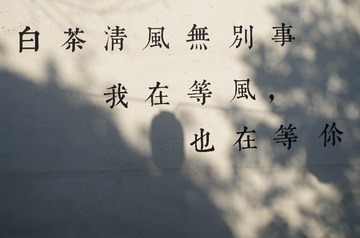 白茶清風無別事
我在等風，
也在等你